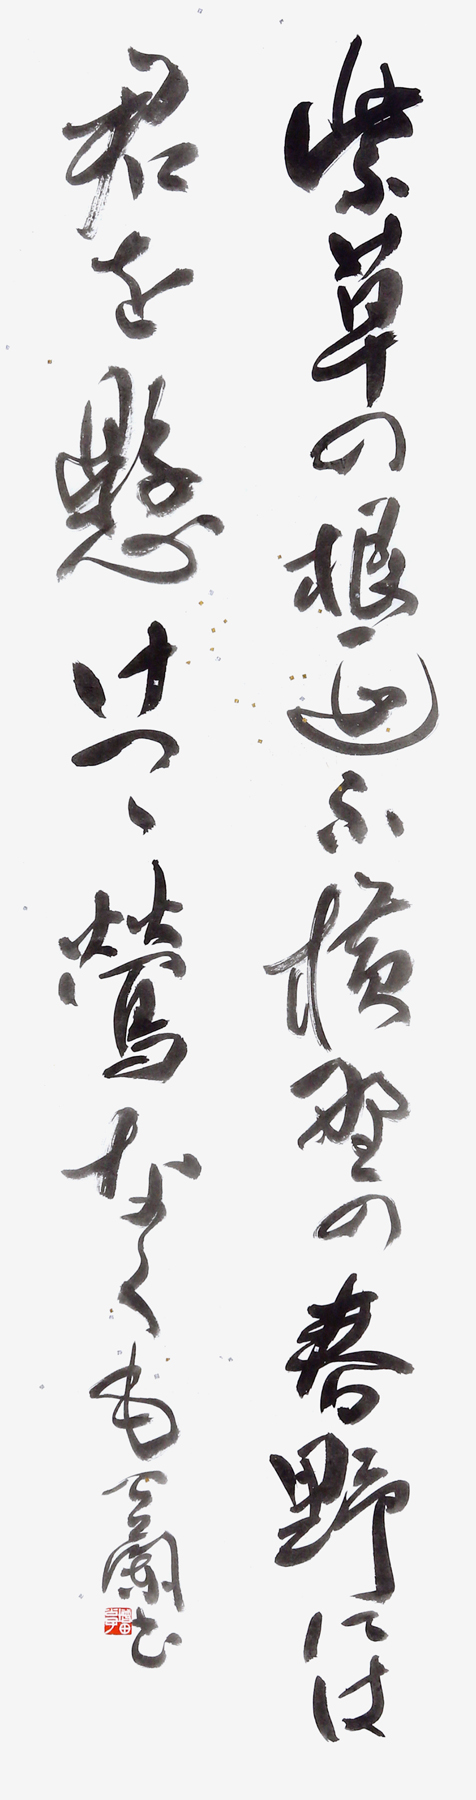 紫草の根延ふ横野の春野には
君を懸けつゝ鶯なくも
蘭書